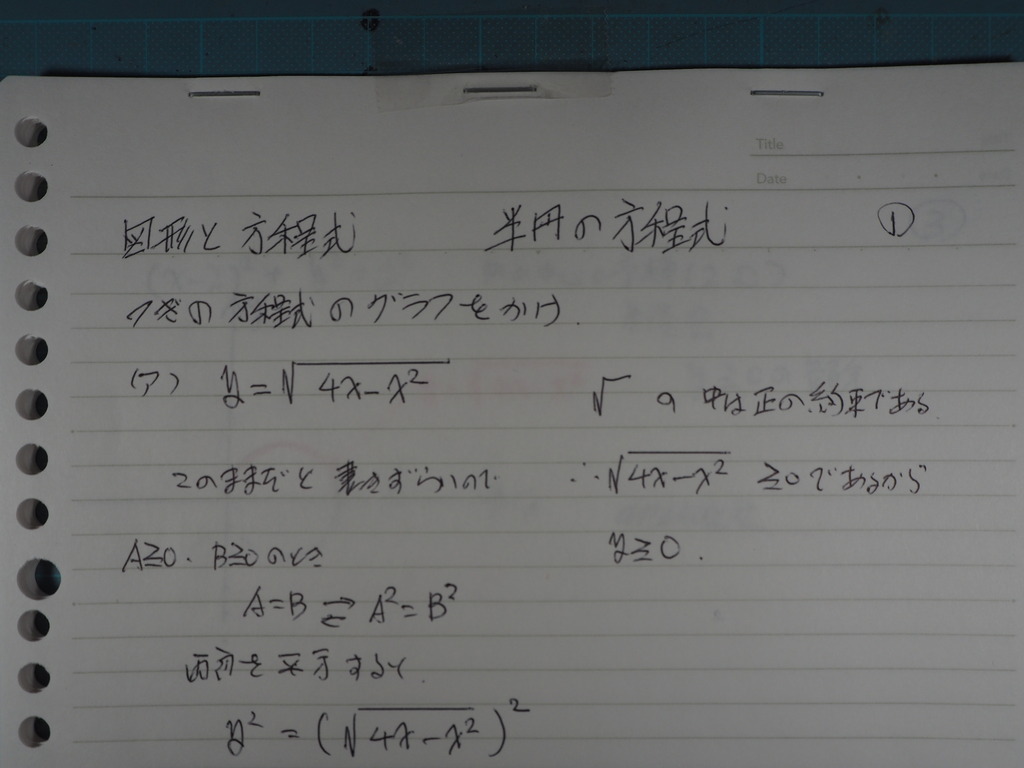 Title
Date
図形と方程式 半円の方程式 ①
つぎの方程式のグラフをかけ.
(ア) y=√4x-x² √ の中は正の約束である
このままだと書きずらいので ∴√4x-x² ≧0であるから
A≧0. B≧0のとき y≧0.
A=B ⇄ A²=B²
両辺を平方すると
y² = (√4x-x²)²